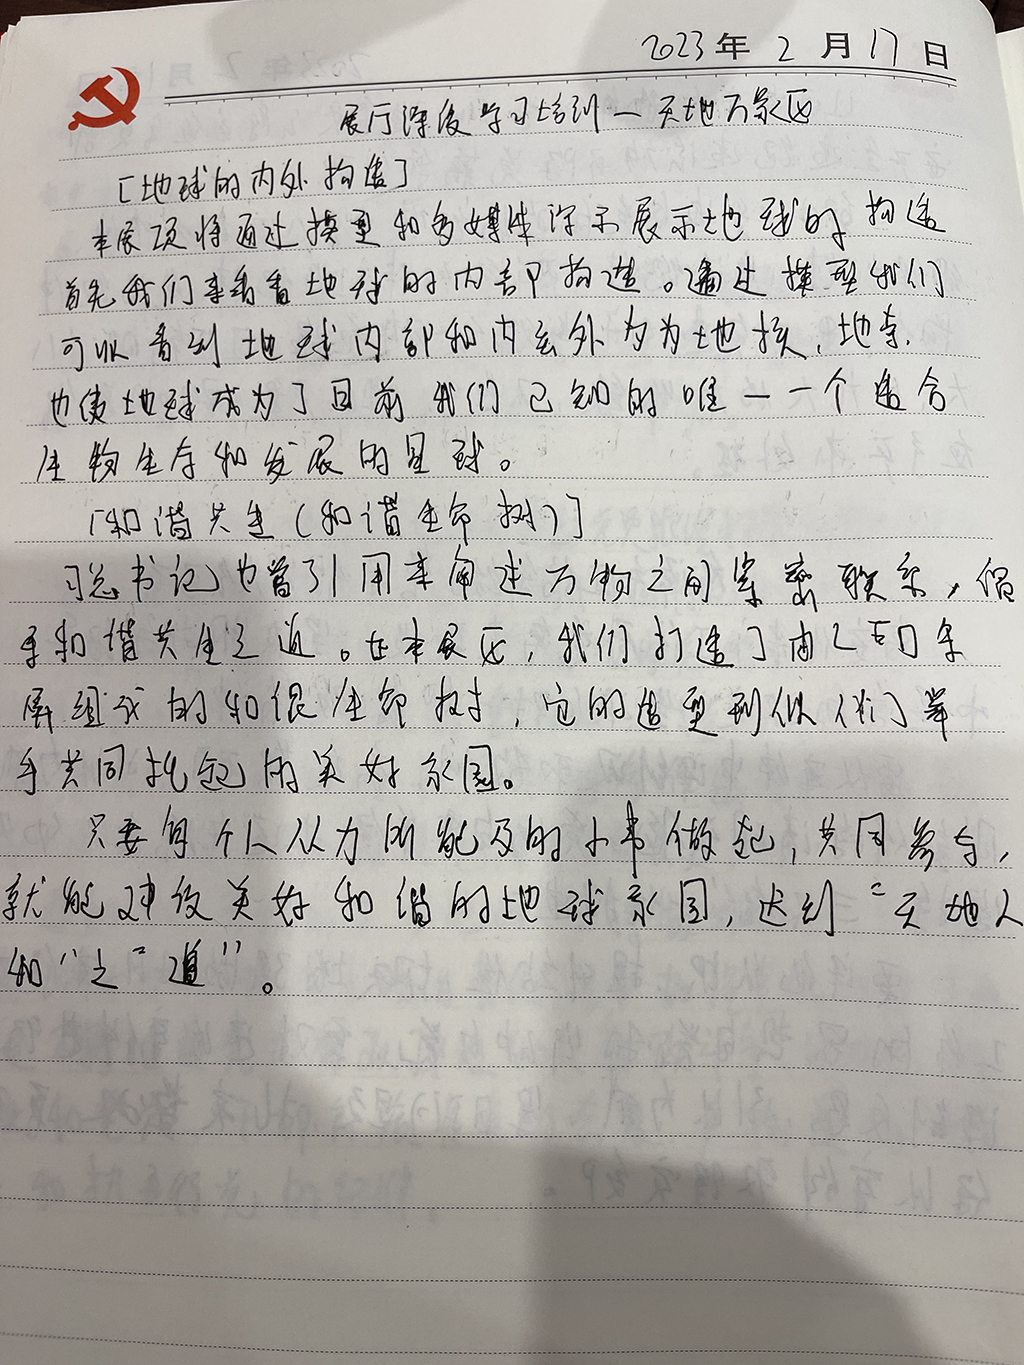 2023年 2 月 17 日
展厅深度学习培训一天地万象区
［地球的内外构造］
本展项将通过模型和多媒体演示展示地球的构造
首先我们来看看地球的内部构造。通过模型我们
可以看到地球内部和内去外为为地核、地幸、
也使地球成为了目前我们已知的唯一一个适合
生物生存和发展的星球。
「和谐共生（和谐生命树）］
习总书记也曾引用来阐述万物之间紧密联系，倡
导和谐共生之道。在本展区，我们打造了由
屏组成的和谐生命树，它的造型到似们举
手共同托起的美好家园。
只要每个人从力所能及的小事做起，共同参与，
就能建设美好和谐的地球家园，达到“天地人
和“之“道”。